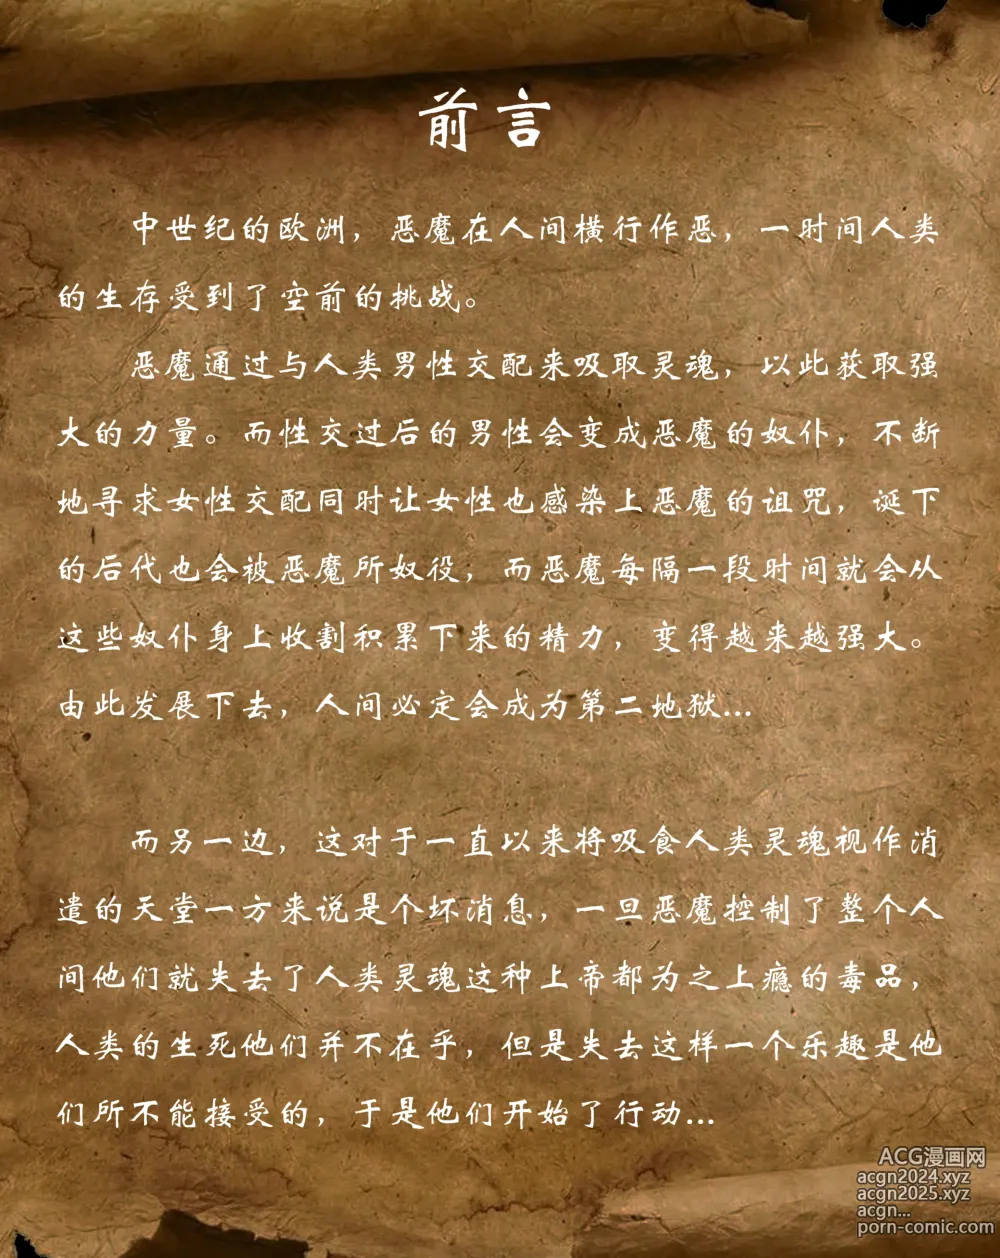 前言
中世纪的欧洲，恶魔在人间横行作恶，一时间人类
的生存受到了空前的挑战。
恶魔通过与人类男性交配来吸取灵魂，以此获取强
大的力量。而性交过后的男性会变成恶魔的奴仆，不断
地寻求女性交配同时让女性也感染上恶魔的诅咒，诞下
的后代也会被恶魔所奴役，而恶魔每隔一段时间就会从
这些奴仆身上收割积累下来的精力，变得越来越强大。
由此发展下去，人间必定会成为第二地狱...
而另一边，这对于一直以来将吸食人类灵魂视作消
遣的天堂一方来说是个坏消息，一旦恶魔控制了整个人
间他们就失去了人类灵魂这种上帝都为之上瘾的毒品，
人类的生死他们并不在乎，但是失去这样一个乐趣是他
们所不能接受的，于是他们开始了行动...
ACG漫画网
acgn2024.xyz
acgn2025.xyz
acgn...
porn-comic.com